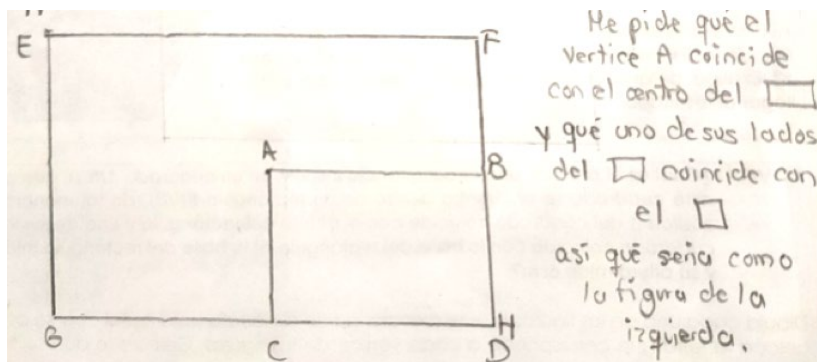 E
F
A
B
G
C
H
D
Me pide qué el
vertice A coincide
con el centro del
y qué uno de sus lados
del coincide con
el
así qué sería como
la figura de la
izquierda.